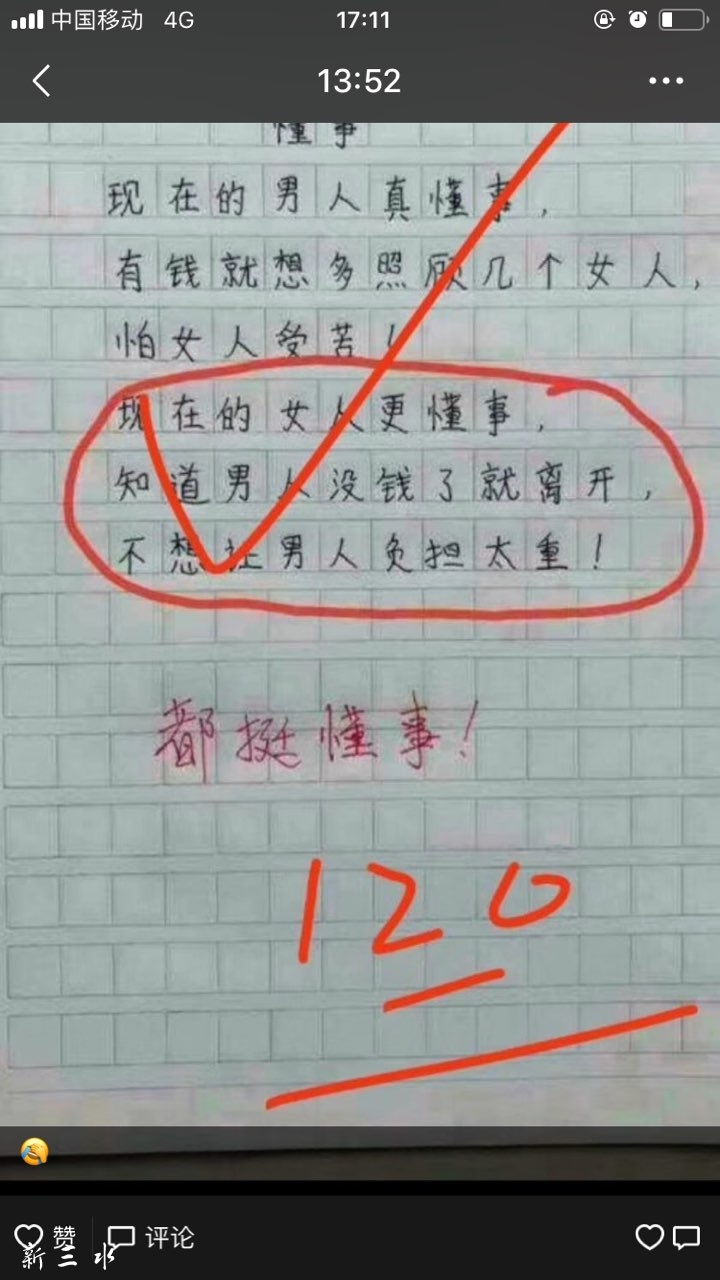 中国移动 4G 17:11
13:52
懂事
现在的男人真懂事，
有钱就想多照顾几个女人，
怕女人受苦！
现在的女人更懂事，
知道男人没钱了就离开，
不想让男人负担太重！
都挺懂事！
120
赞 评论
新三水